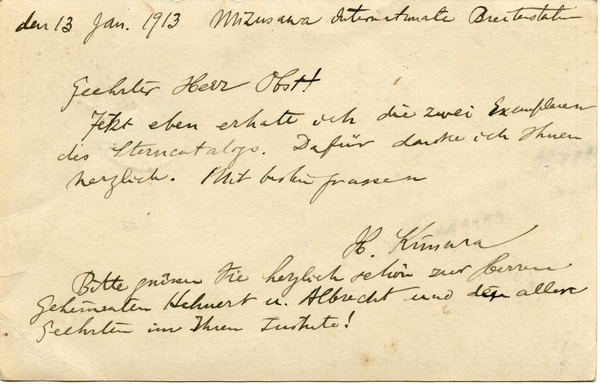 den 13 Jan. 1913 Mizusawa Internationale Breitenstation
Geehrter Herr Obst!
Jetzt eben erhalte ich die zwei Exemplaren
des Sterncatalogs. Dafür danke ich Ihnen
herzlich. Mit besten grussen
H. Kimura
Bitte grüssen Sie herzlich schön zur Herren
Geheimraten Helmert u. Albrecht und den allen
Geehrten im Ihren Institute!